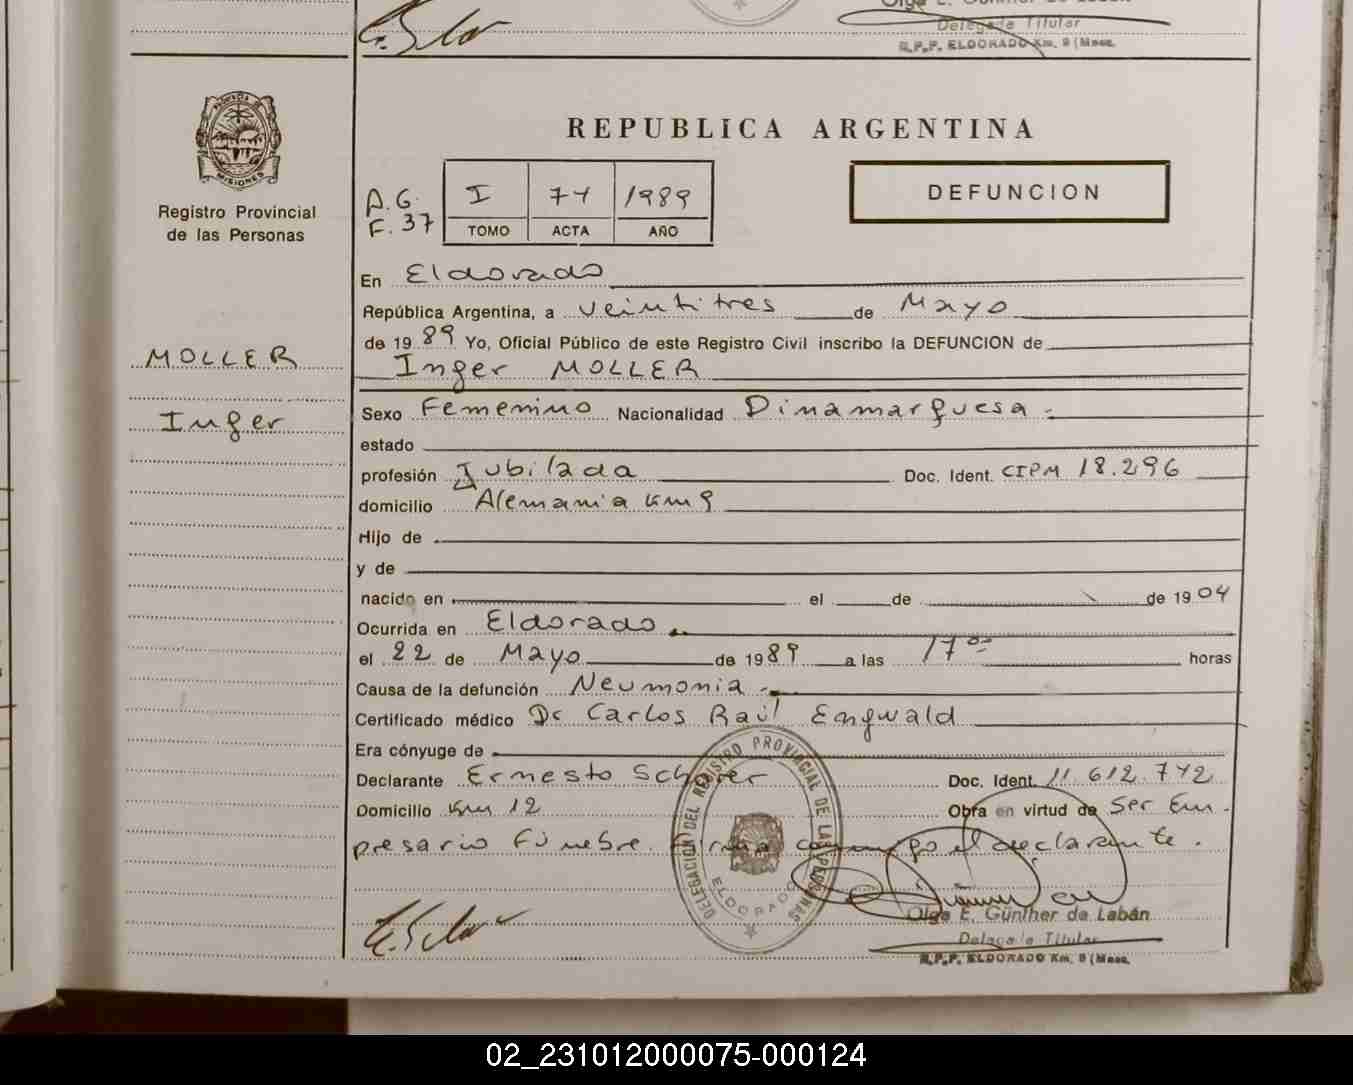 Olga E. Günther de Labán
Delegada Titular
R.P.P. ELDORADO Km. 9 (Mnes.
PROVINCIA DE
MISIONES
Registro Provincial
de las Personas
MOLLER
Inger
REPUBLICA ARGENTINA
DEFUNCION
A.G. I 74 1989
F. 37 TOMO ACTA AÑO
En Eldorado
República Argentina, a veintitres de Mayo
de 1989 Yo, Oficial Público de este Registro Civil inscribo la DEFUNCION de
Inger MOLLER
Sexo Femenino Nacionalidad Dinamarquesa.
estado
profesión Jubilada Doc. Ident. CIPM 18.296
domicilio Alemania km 9
Hijo de
y de
nacido en el de de 1904
Ocurrida en Eldorado.
el 22 de Mayo de 1989 a las 17 00 horas
Causa de la defunción Neumonia.
Certificado médico Dr Carlos Raúl Engwald
Era cónyuge de
Declarante Ernesto Scherer Doc. Ident. 11.612.742
Domicilio km 12 Obra en virtud de Ser Em-
presario Fúnebre. Firma conmigo el declarante.
DELEGACION DEL REGISTRO PROVINCIAL DE LAS PERSONAS
ELDORADO
Olga E. Günther de Labán
Delegada Titular
R.P.P. ELDORADO Km. 9 (Mnes.
02_231012000075-000124